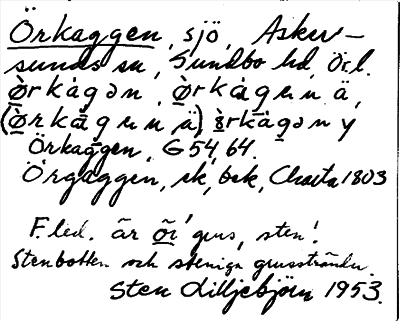 Örkaggen, sjö, Asker-
sunds sn, Sundbo hd, Ö.l.
ò̱rkágən, ò̱rkágen ä,
(ò̱rkāg en ä), ò̱rkāgən y
Örkaggen, G 54, 64.
Örgaggen, ek, bek, Charta 1803
F. led. är ör 'grus, sten'.
Stenbotten och steniga grusstränder.
Sten Lilljebjörn 1953.